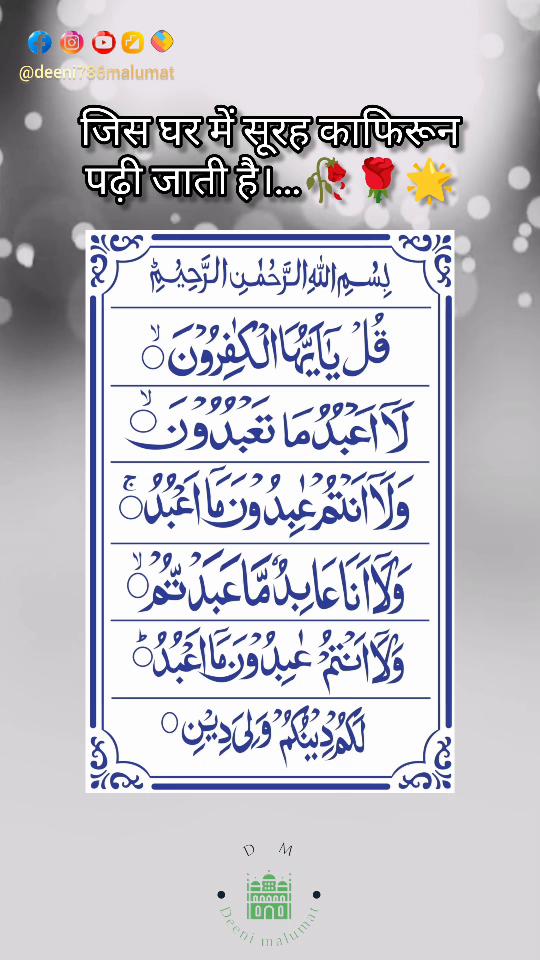 @deeni786malumat
जिस घर में सूरह काफिरून
पढ़ी जाती है।...
بِسْمِ اللهِ الرَّحْمٰنِ الرَّحِيْمِ
قُلْ يٰۤاَيُّهَا الْكٰفِرُوْنَ ۙ
لَاۤ اَعْبُدُ مَا تَعْبُدُوْنَ ۙ
وَلَاۤ اَنْتُمْ عٰبِدُوْنَ مَاۤ اَعْبُدُ ۚ
وَلَاۤ اَنَا عَابِدٌ مَّا عَبَدْتُّمْ ۙ
وَلَاۤ اَنْتُمْ عٰبِدُوْنَ مَاۤ اَعْبُدُ ؕ
لَكُمْ دِيْنُكُمْ وَلِيَ دِيْنِ
D M
Deeni malumat